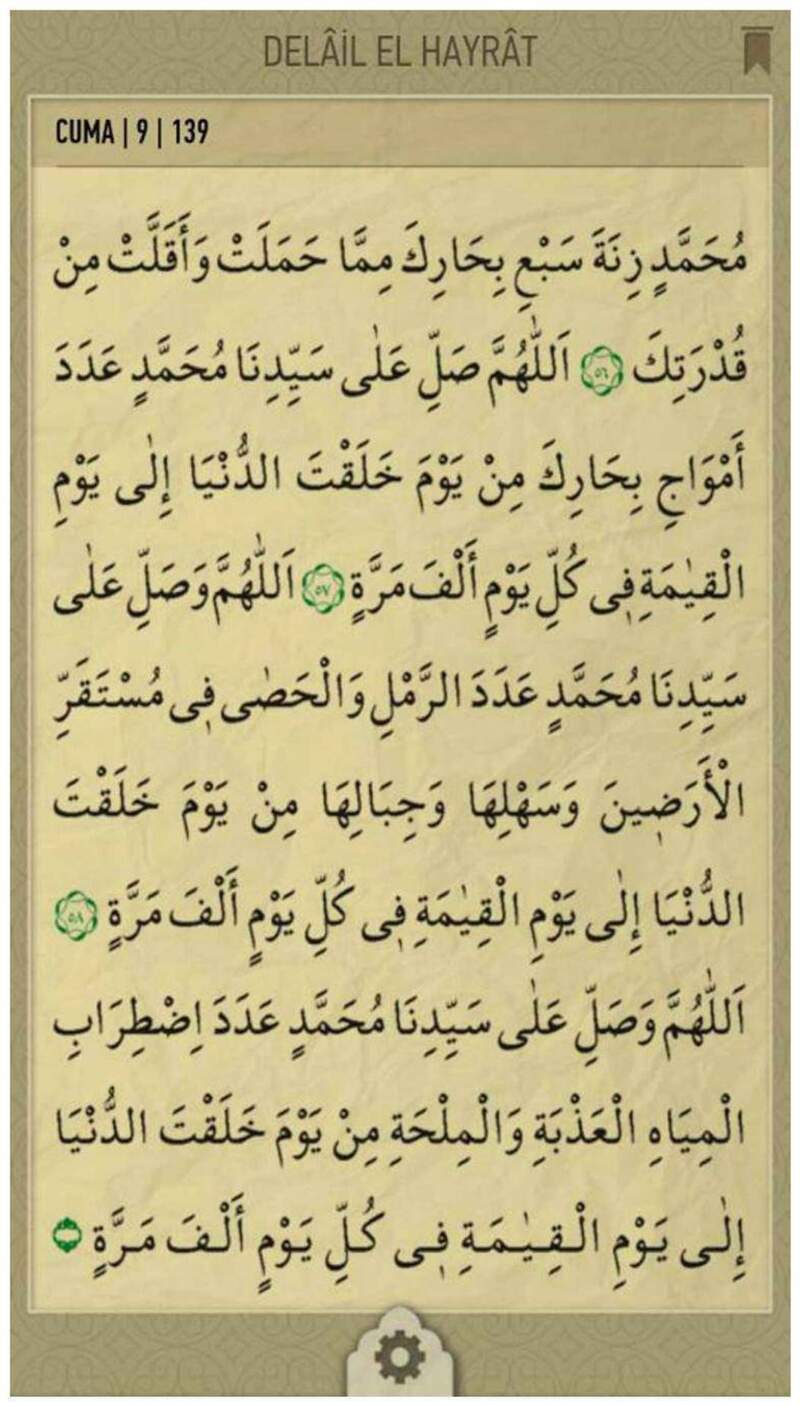 DELÂİL EL HAYRÂT
CUMA | 9 | 139
مُحَمَّدٍ زِنَةَ سَبْعِ بِحَارِكَ مِمَّا حَمَلَتْ وَأَقَلَّتْ مِنْ
قُدْرَتِكَ ٥٦ اَللّٰهُمَّ صَلِّ عَلٰى سَيِّدِنَا مُحَمَّدٍ عَدَدَ
أَمْوَاجِ بِحَارِكَ مِنْ يَوْمَ خَلَقْتَ الدُّنْيَا إِلٰى يَوْمِ
الْقِيٰمَةِ فِى كُلِّ يَوْمٍ أَلْفَ مَرَّةٍ ٥٧ اَللّٰهُمَّ وَصَلِّ عَلٰى
سَيِّدِنَا مُحَمَّدٍ عَدَدَ الرَّمْلِ وَالْحَصٰى فِى مُسْتَقَرِّ
الْأَرَضِينَ وَسَهْلِهَا وَجِبَالِهَا مِنْ يَوْمَ خَلَقْتَ
الدُّنْيَا إِلٰى يَوْمِ الْقِيٰمَةِ فِى كُلِّ يَوْمٍ أَلْفَ مَرَّةٍ ٥٨
اَللّٰهُمَّ وَصَلِّ عَلٰى سَيِّدِنَا مُحَمَّدٍ عَدَدَ اِضْطِرَابِ
الْمِيَاهِ الْعَذْبَةِ وَالْمِلْحَةِ مِنْ يَوْمَ خَلَقْتَ الدُّنْيَا
إِلٰى يَوْمِ الْقِيٰمَةِ فِى كُلِّ يَوْمٍ أَلْفَ مَرَّةٍ